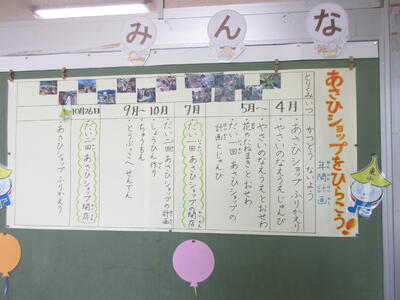 みんな
あさひショップをひらこう！
年間計画
とりくみ
いつ
かつどうないよう
4月
・あさひショップふりかえり
・やさいのなえうえじゅんび
5月～
・やさいのなえうえとおせわ
・花のたねまきとおせわ
・だい一回あさひショップの
計画とじゅんび
7月
だい一回あさひショップ開店
・だい二回あさひショップの計画
9月～10月
・しょうひん作り
・ちゅうもん
10月26日
だい二回あさひショップ開店
・あさひショップふりかえり